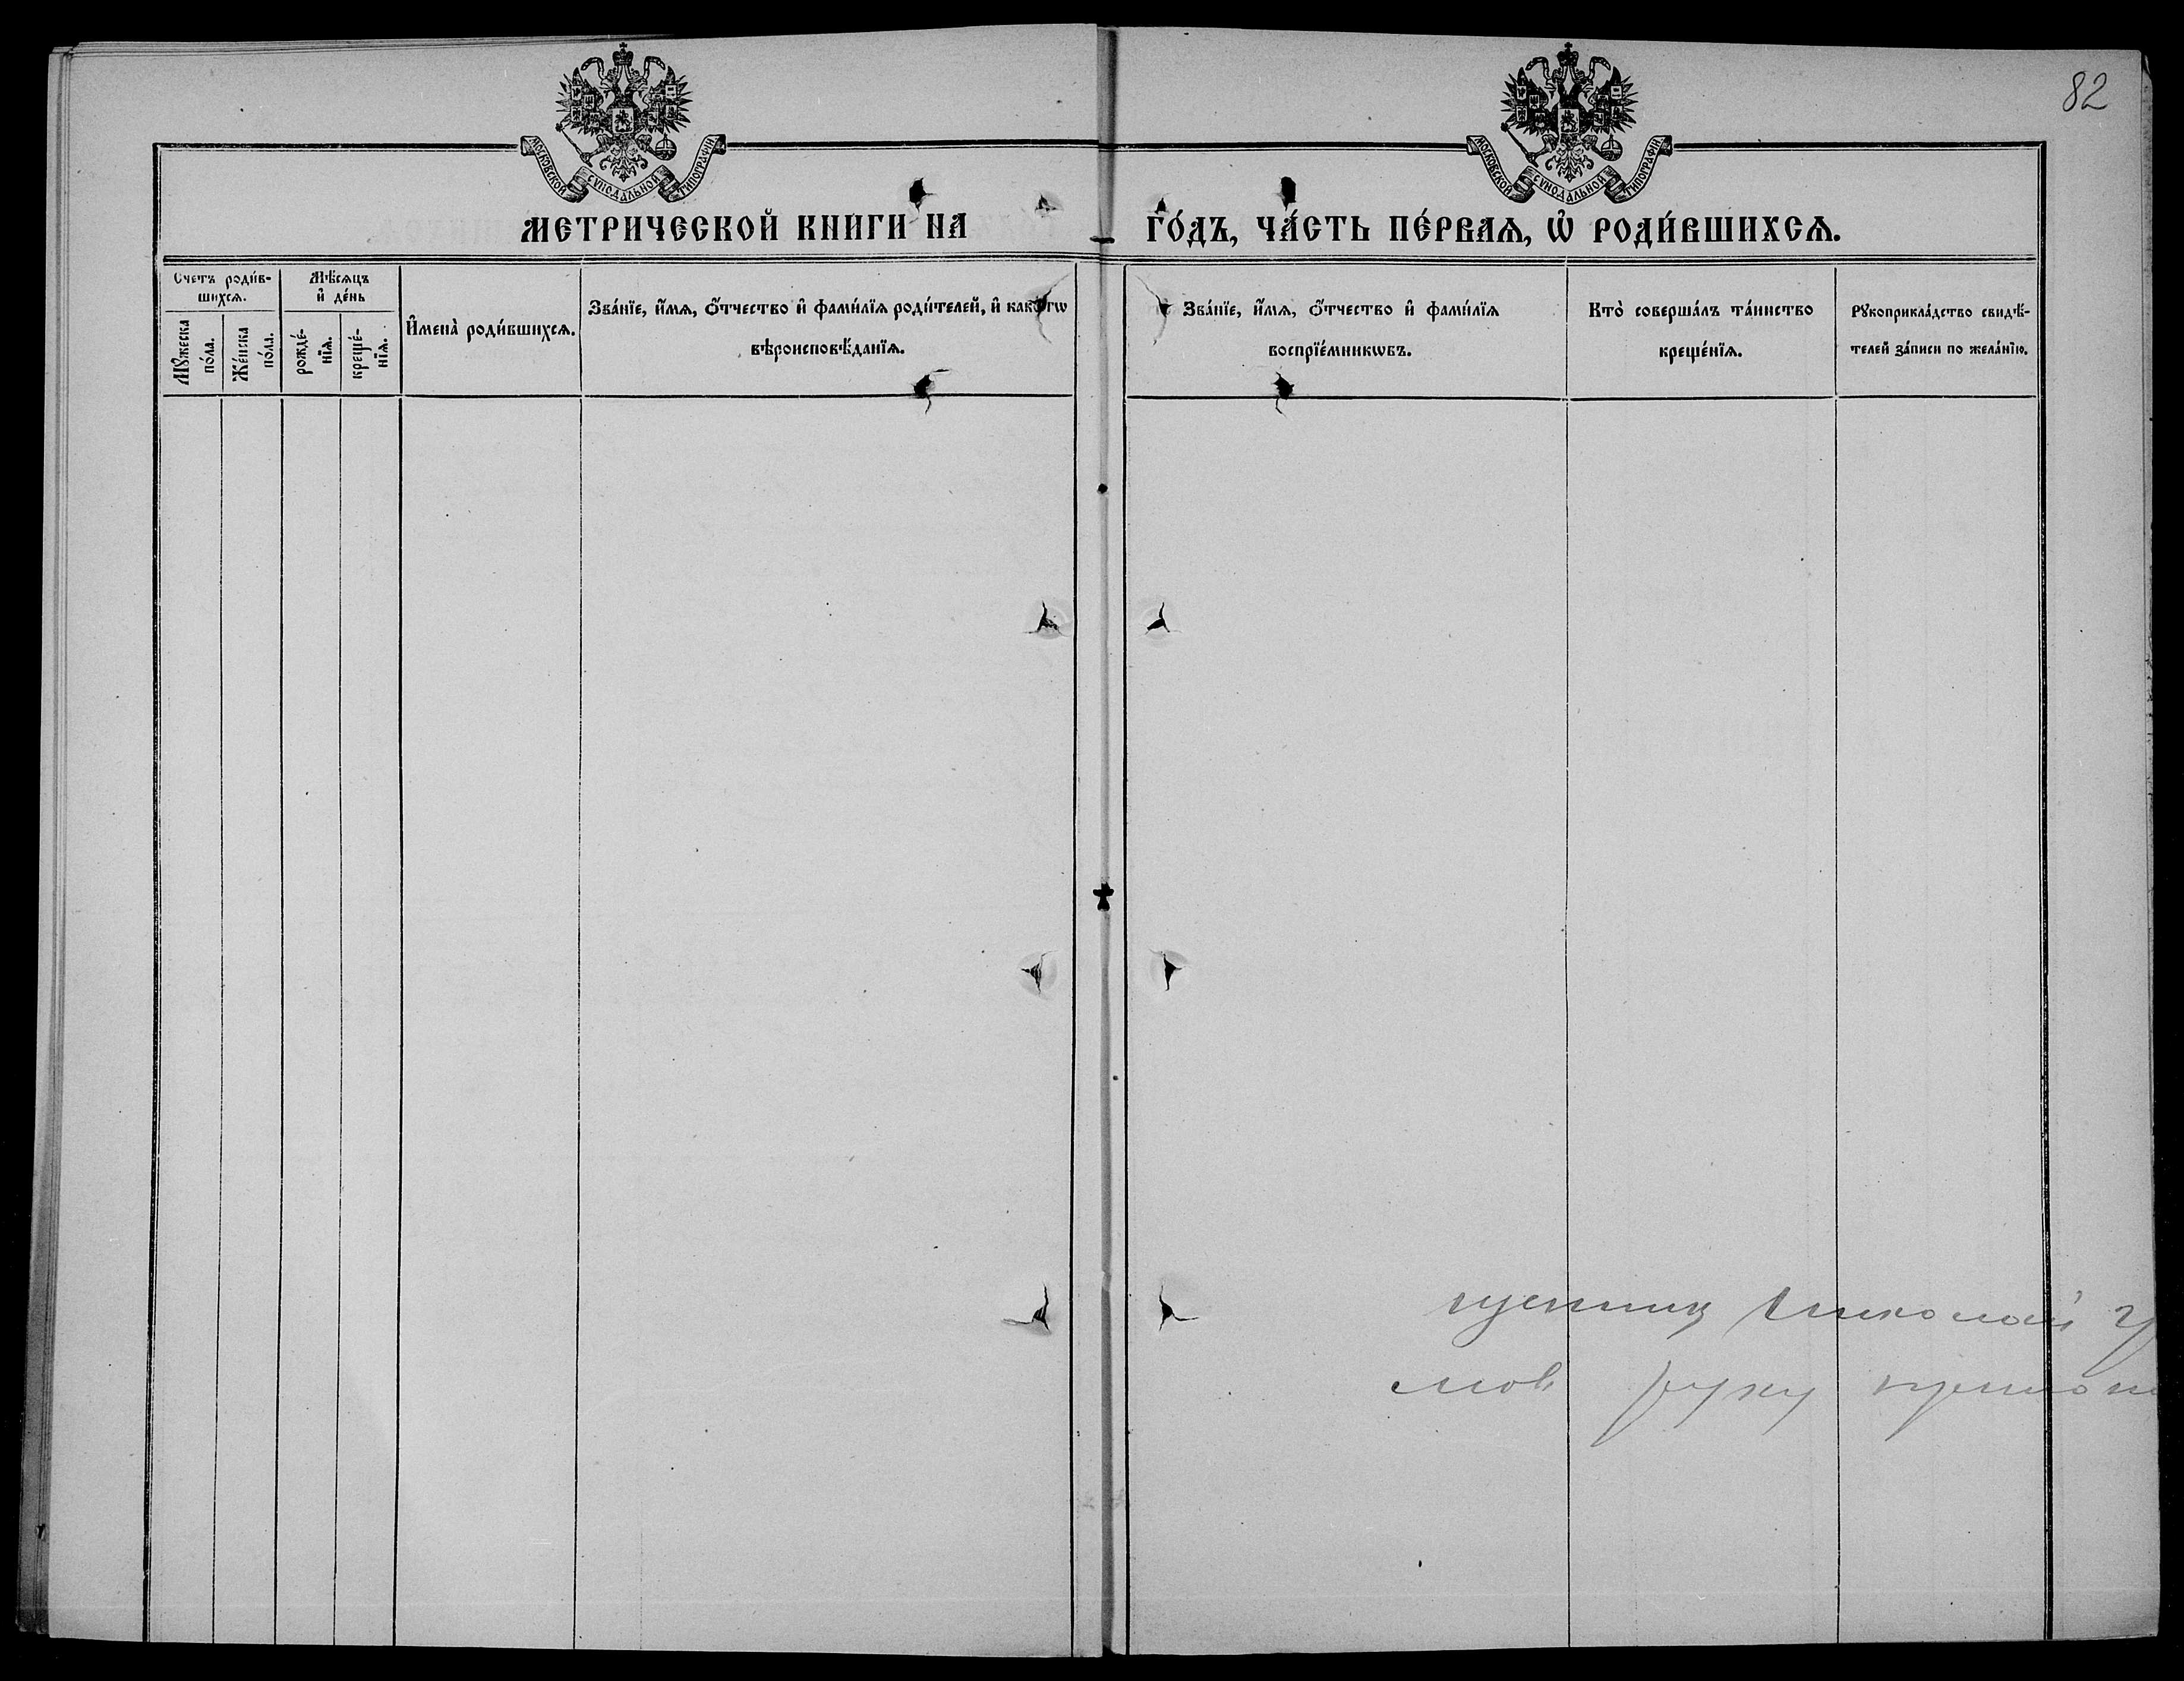 82
МОСКОВСКОЙ СѴНОДАЛЬНОЙ ТИПОГРАФІИ
МОСКОВСКОЙ СѴНОДАЛЬНОЙ ТИПОГРАФІИ
МЕТРИЧЕСКОЙ КНИГИ НА
ГО́ДЪ, ЧА́СТЬ ПЕ́РВАѦ, Ѽ РОДИ́ВШИХСѦ.
Счетъ роди́в-
шихсѧ.
Мꙋжеска
по́ла.
Же́нска
по́ла.
Мѣ́сѧцъ
и҆ де́нь
рожде́-
нїѧ.
креще́-
нїѧ.
И҆мена̀ роди́вшихсѧ.
Зва́нїе, и҆́мѧ, ѻ҆́тчество и҆ фами́лїѧ роди́телей, и҆ како́гѡ
вѣроисповѣ́данїѧ.
Зва́нїе, и҆́мѧ, ѻ҆́тчество и҆ фами́лїѧ
воспрїе́мникѡвъ.
Кто̀ соверша́лъ та́инство
креще́нїѧ.
Рꙋкоприкла́дство свидѣ́-
телей за́писи по жела́нїю.
Николай
руку